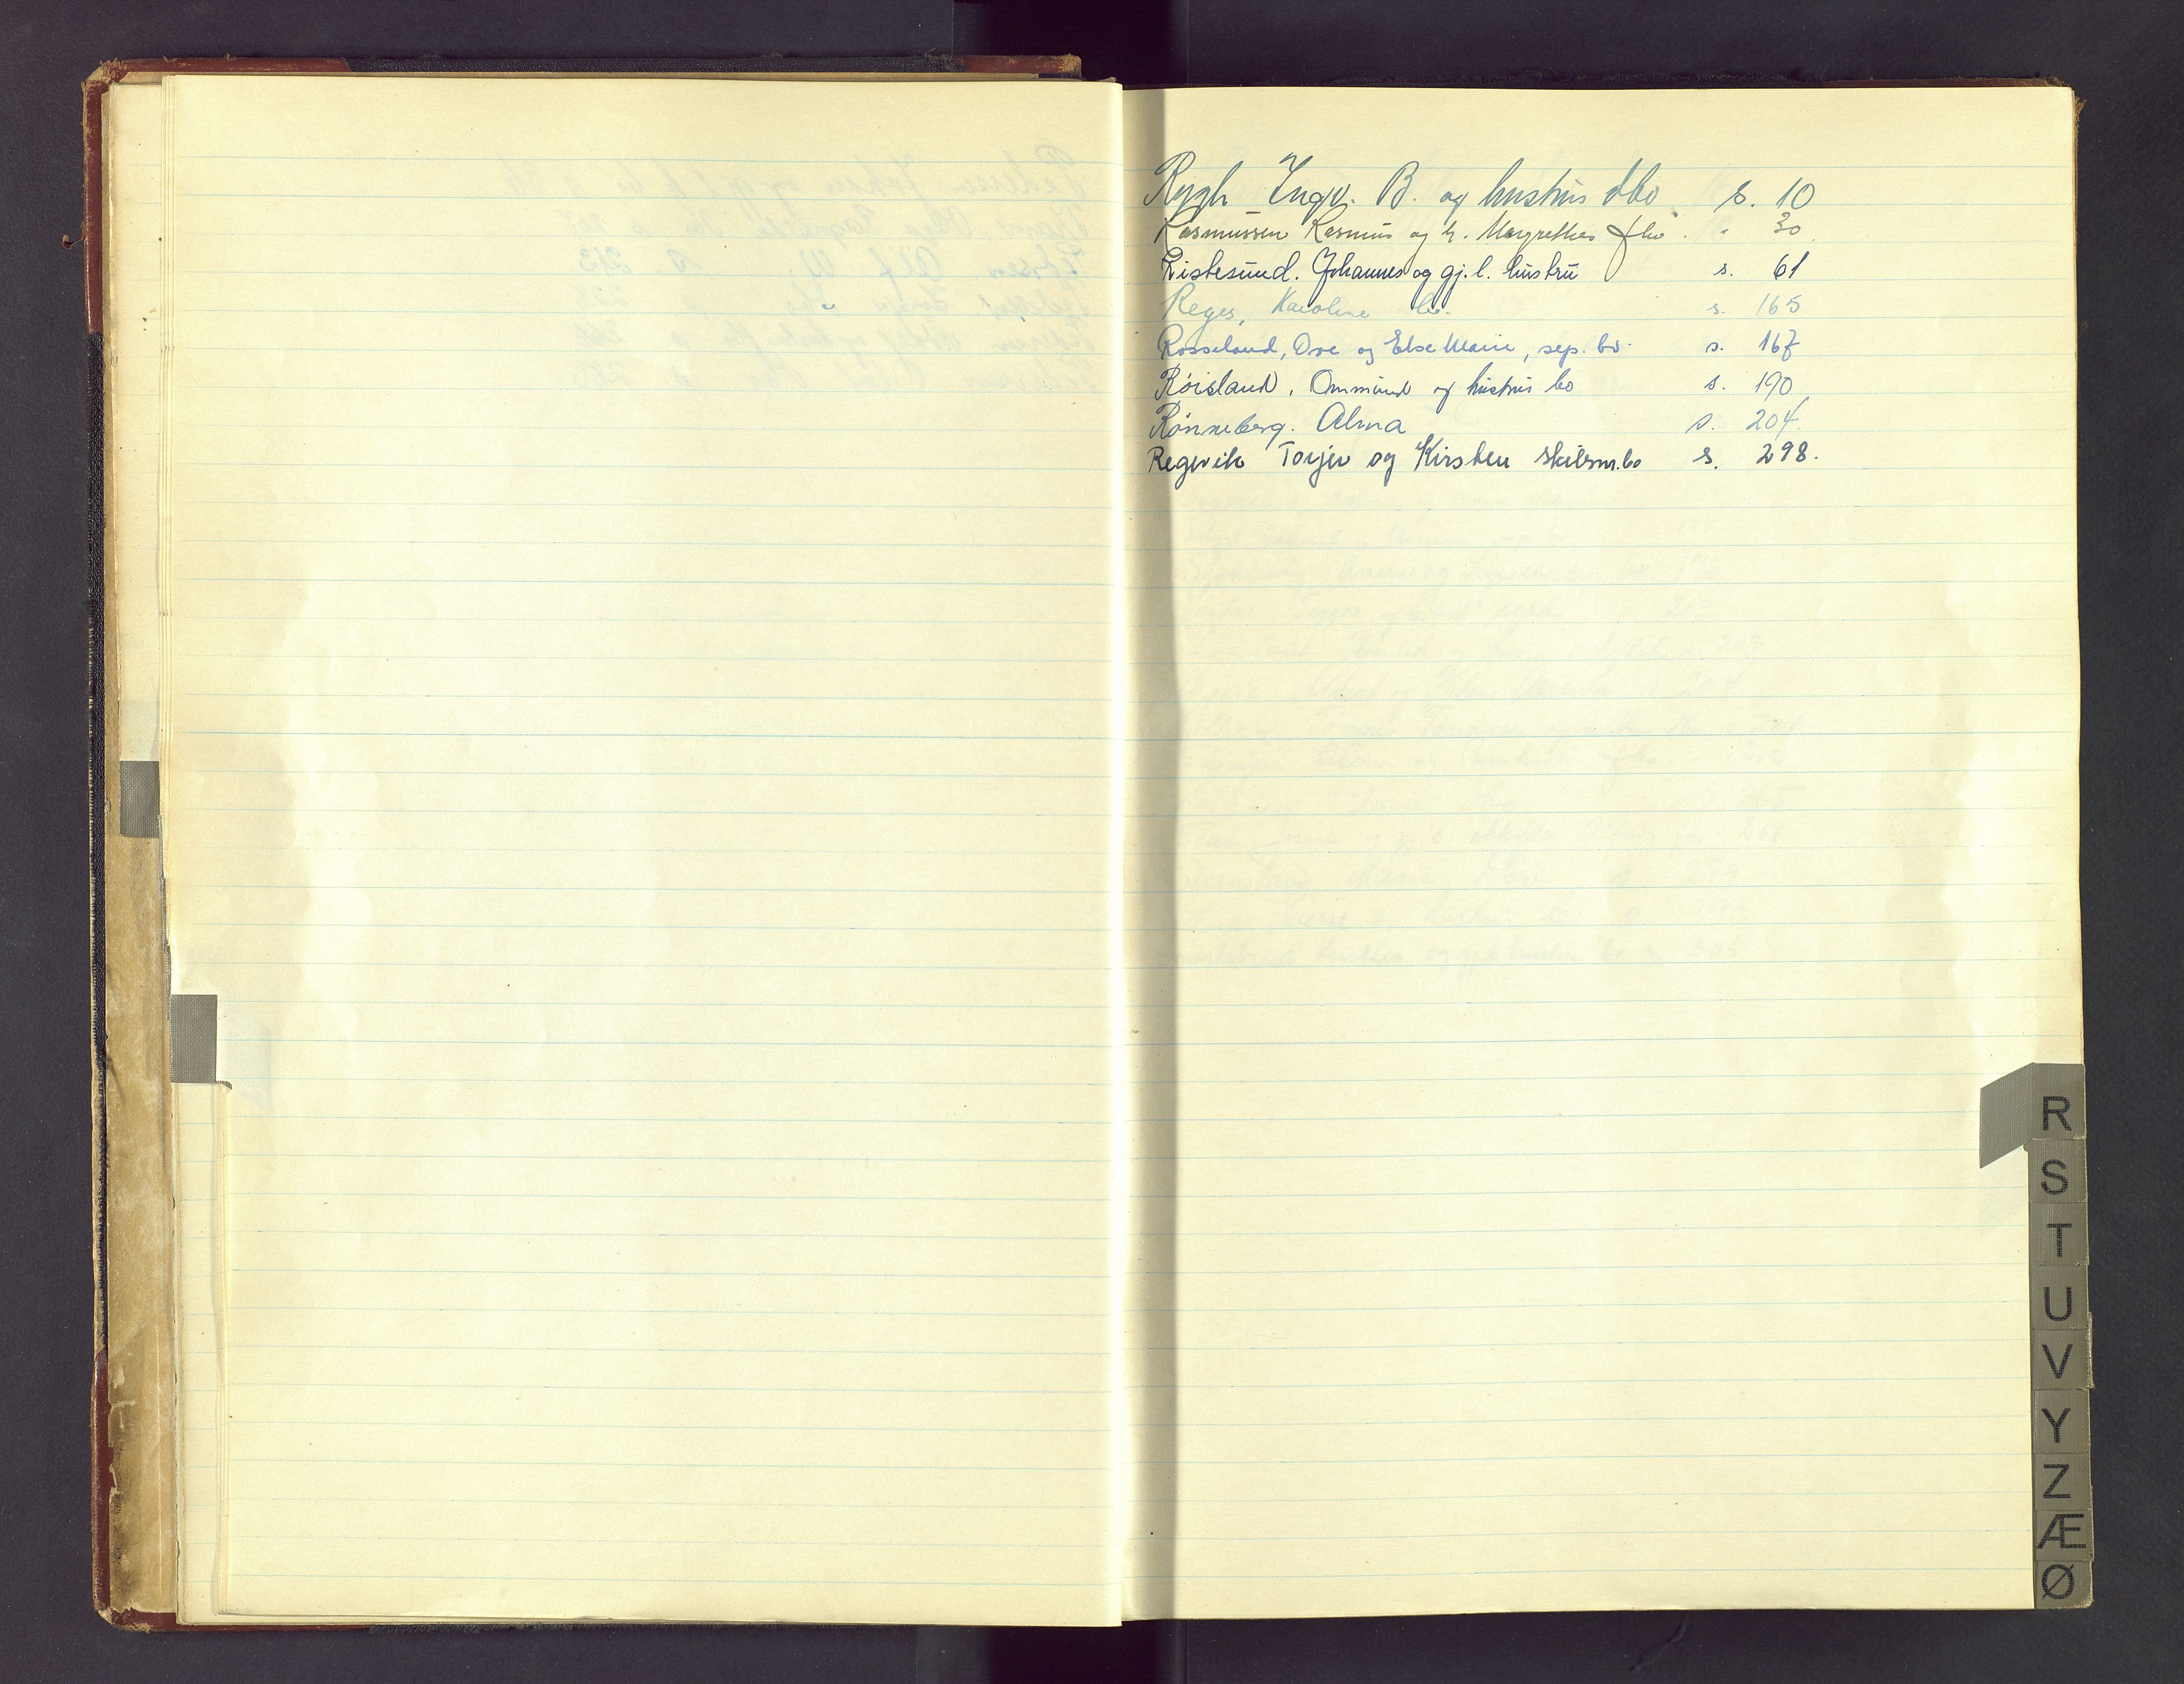 Rygh Ingv. B. og hustrus dbo s. 10
Rasmussen Rasmus og h. Margrethes fbo. " 30
Ristesund. Johannes og gj.l. hustru s. 61
Reges, Karoline bo. s. 165
Rosseland, Ove og Else Marie, sep. bo. s. 167
Röisland, Ommund og hustrus bo s. 190
Rönneberg. Alma s. 204.
Regevik Torjer og Kirsten skilsm.bo s. 298.
R
S
T
U
V
Y
Z
Æ
Ø